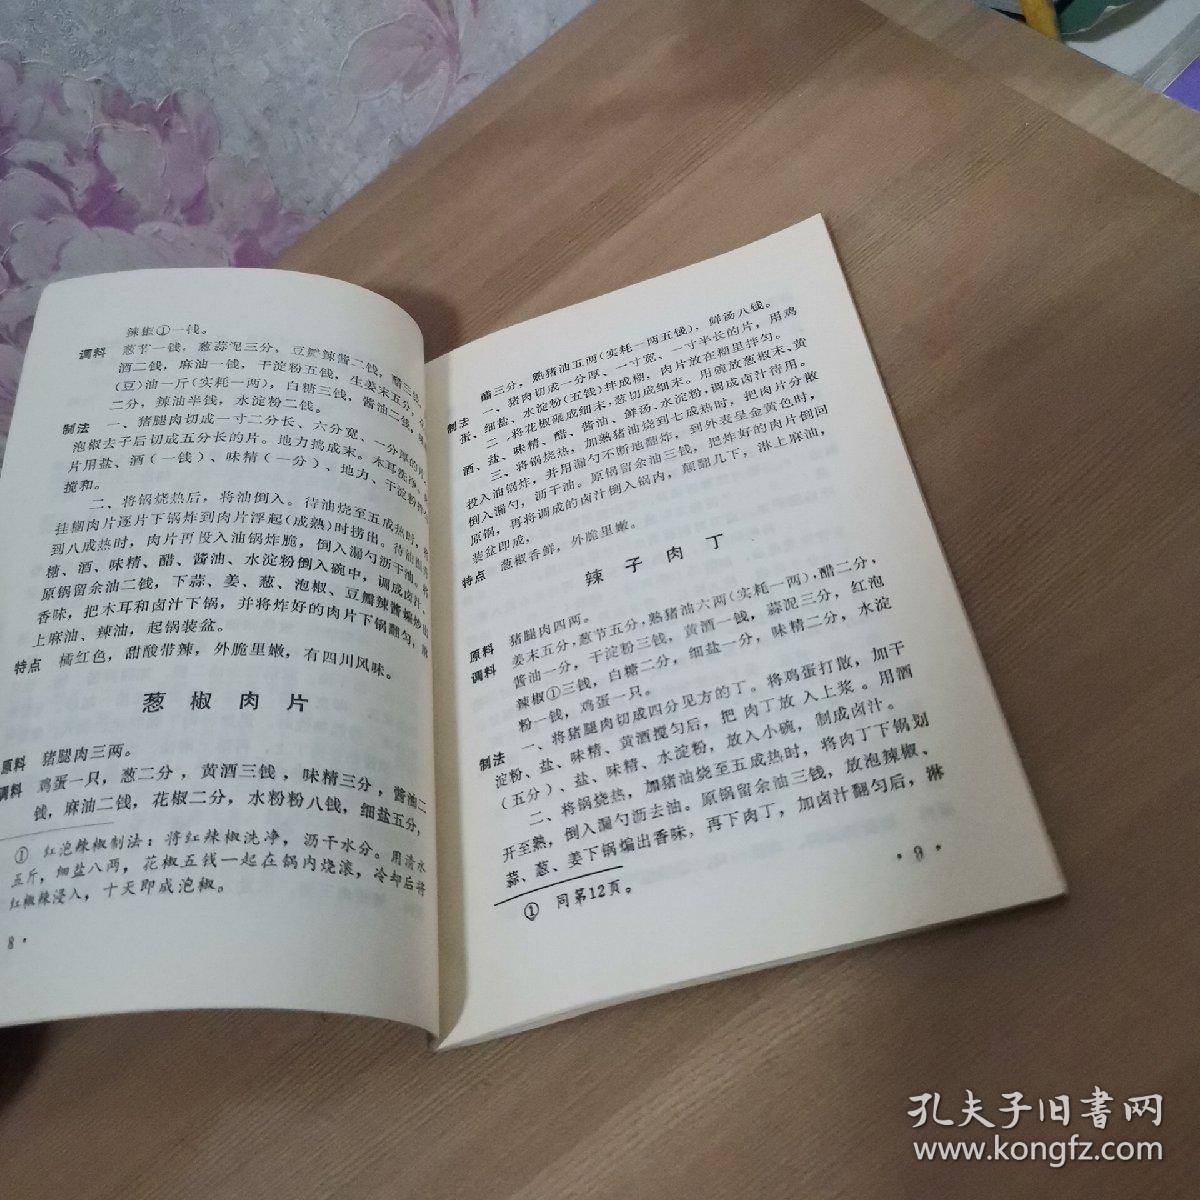 辣椒①一钱。
调料 葱节一钱，葱蒜泥三分，豆瓣辣酱二钱，醋三钱，
酒二钱，麻油一钱，干淀粉五钱，生姜末五分，
(豆)油一斤(实耗一两)，白糖三钱，酱油二钱，
二分，辣油半钱，水淀粉二钱。
制法 一、猪腿肉切成一寸二分长、六分宽、一分厚的
泡椒去子后切成五分长的片。地力搞成末。木耳洗净，
片用盐、酒(一钱)、味精(一分)、地力、干淀粉
搅和。
二、将锅烧热后，将油倒入。待油烧至五成热时，
挂糊肉片逐片下锅炸到肉片浮起(成熟)时捞出。待油
到八成热时，肉片再投入油锅炸脆，倒入漏勺沥干油。
糖、酒、味精、醋、酱油、水淀粉倒入碗中，调成卤汁。
原锅留余油二钱，下蒜、姜、葱、泡椒、豆瓣辣酱煸炒出
香味，把木耳和卤汁下锅，并将炸好的肉片下锅翻匀，
上麻油、辣油，起锅装盆。
特点 橘红色，甜酸带辣，外脆里嫩，有四川风味。
葱椒肉片
原料 猪腿肉三两。
调料 鸡蛋一只，葱二分，黄酒三钱，味精三分，酱油二
钱，麻油二钱，花椒二分，水粉粉八钱，细盐五分，
① 红泡辣椒制法：将红辣椒洗净，沥干水分。用清水
五斤，细盐八两，花椒五钱一起在锅内烧滚，冷却后将
红椒辣浸入，十天即成泡椒。
8·
醋三分，熟猪油五两(实耗一两五钱)，鲜汤八钱。
制法 一、猪肉切成一分厚、一寸宽、一寸半长的片，用鸡
蛋、细盐、水淀粉(五钱)拌成糊，肉片放在糊里拌匀。
二、将花椒碾成细末，葱切成细末。用碗放葱椒末、黄
酒、盐、味精、醋、酱油、鲜汤、水淀粉，调成卤汁待用。
三、将锅烧热，加熟猪油烧到七成热时，把肉片分散
投入油锅炸，并用漏勺不断地翻炸，到外表呈金黄色时，
倒入漏勺，沥干油。原锅留余油三钱，把炸好的肉片倒回
原锅，再将调成的卤汁倒入锅内，颠翻几下，淋上麻油，
装盆即成。
特点 葱椒香鲜，外脆里嫩。
辣子肉丁
原料 猪腿肉四两。
调料 姜末五分，葱节五分，熟猪油六两(实耗一两)，醋二分，
酱油一分，干淀粉三钱，黄酒一钱，蒜泥三分，红泡
辣椒①三钱，白糖二分，细盐一分，味精二分，水淀
粉一钱，鸡蛋一只。
制法 一、将猪腿肉切成四分见方的丁。将鸡蛋打散，加干
淀粉、盐、味精、黄酒搅匀后，把肉丁放入上浆。用酒
(五分)、盐、味精、水淀粉，放入小碗，制成卤汁。
二、将锅烧热，加猪油烧至五成热时，将肉丁下锅划
开至熟，倒入漏勺沥去油。原锅留余油三钱，放泡辣椒、
蒜、葱、姜下锅煸出香味，再下肉丁，加卤汁翻匀后，淋
① 同第12页。
·9·
孔夫子旧书网
www.kongfz.com